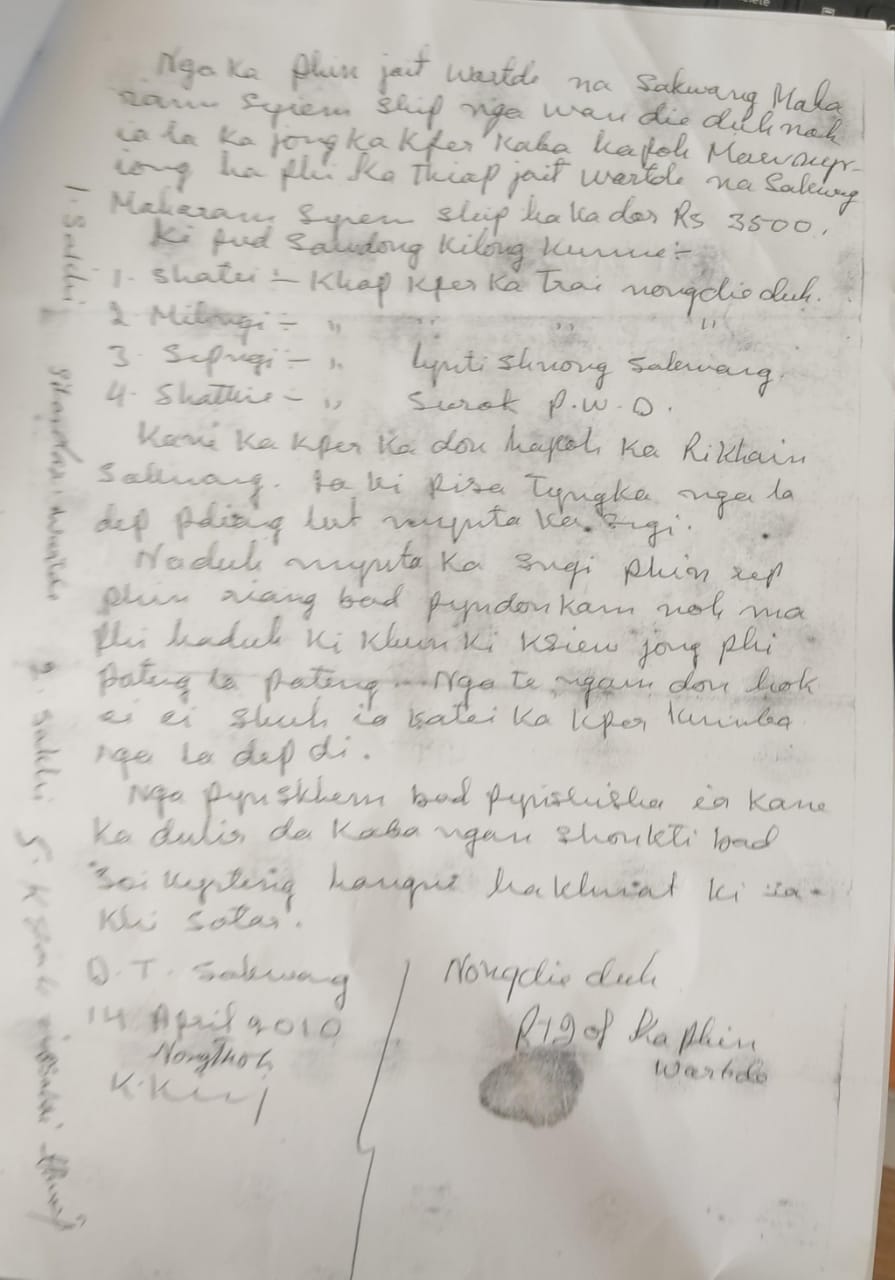 Nga ka Phin jait Wartde na Sakwang Maha
ram Syiem ship nga wan die duh noh
ia la ka jong ka kper kaba hapoh Mawsyn-
iong ha phi ka Thiap jait Wartde na Sakwang
Maharam Syiem ship ha ka dor Rs 3500.
Ki pud Sawdong kilong kumne:-
1. Shatei :- Khap kper ka Trai nongdie duh.
2. Mihngi :- " " " "
3. Sepngi :- " lynti Shnong Sakwang.
4. Shathie :- " Surok P.W.D.
Kane ka kper ka don hapoh ka Rikhain
Sakwang. Ia ki pisa Tyngka nga la
dep pdiang lut mynta ka sngi.
Naduh mynta ka sngi phin rep
phin riang bad pyndonkam noh ma
phi haduh ki khun ki ksiew jong phi
pateng la pateng. Nga te ngam don hok
ei ei shuh ia katei ka kper kumba
nga la dep di.
Nga pynskhem bad pynshisha ia kane
ka dulir da kaba ngan shonkti bad
Soi kyrteng hangne hakhmat ki sa-
khi sotar.
D.T. Sakwang
14 April 2010
Nongthoh
Nongdie duh
RTI of Ka Phin
Wartde
1. Sakhi
2. Sakhi